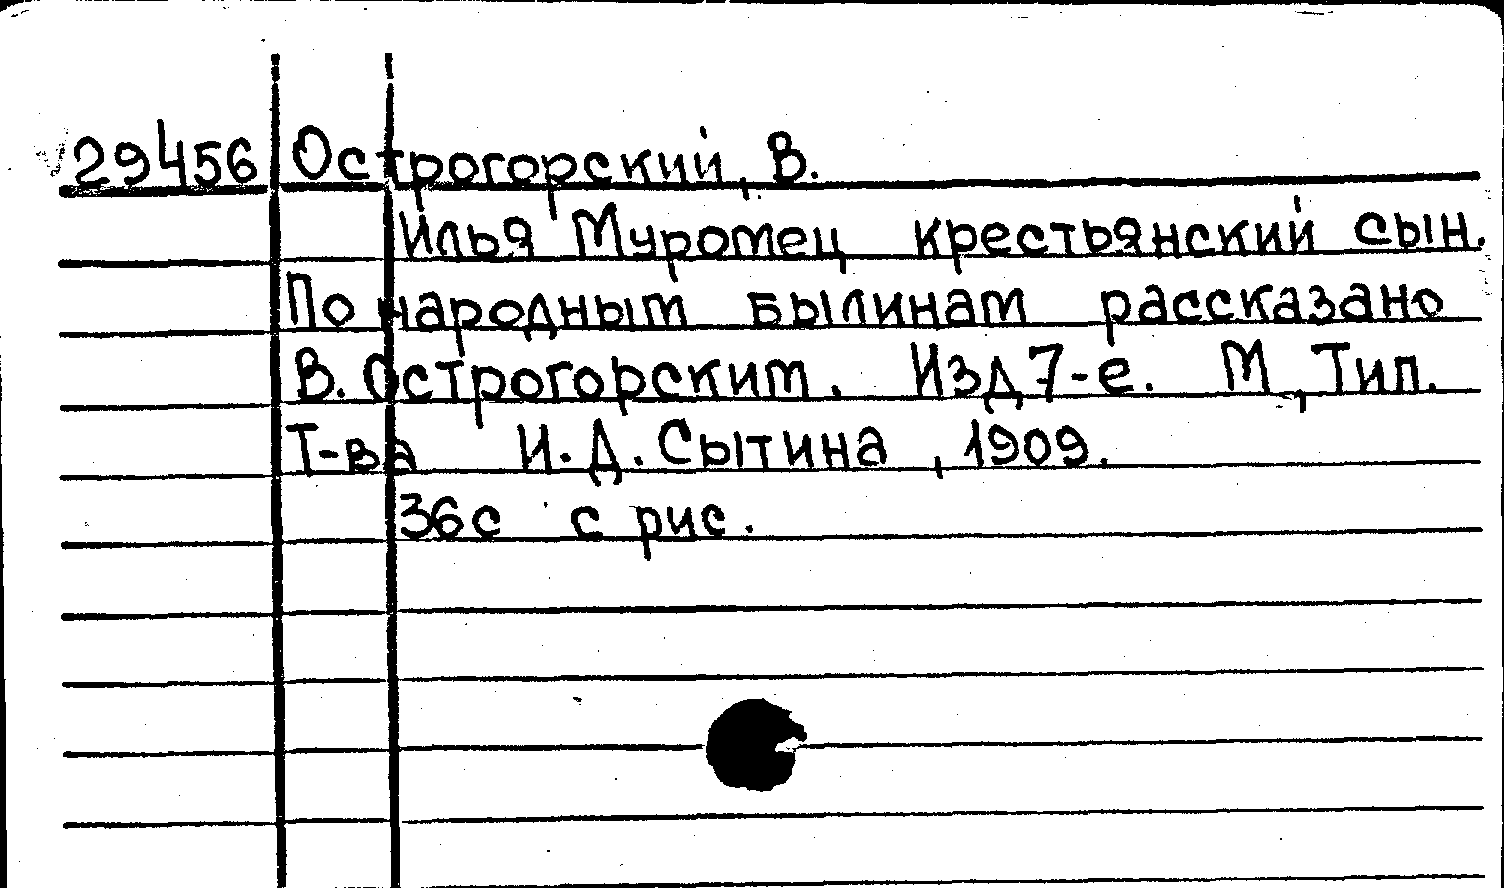 29456 Острогорский, В.
Илья Муромец крестьянский сын.
По народным былинам рассказано
В. Острогорским. Изд 7-е. М, Тип.
Т-ва И. Д. Сытина, 1909.
36с с рис.